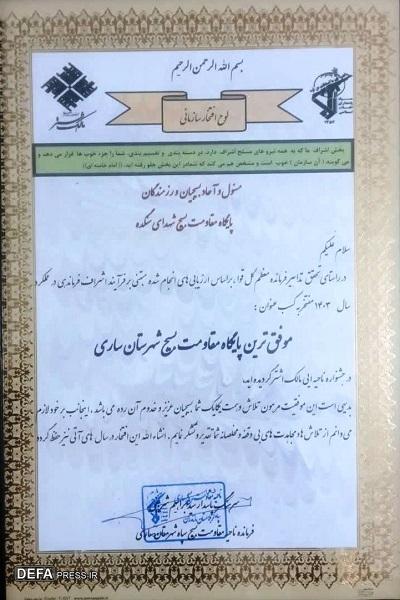 بسم الله الرحمن الرحیم
مالک اشتر
لوح افتخار سازمانی
بخش اشراف ما که به همه نیروهای مسلح اشراف دارد، در دسته بندی و تقسیم بندی، شما را جزء خوب ها قرار می دهد و
می گوید: ( آن سازمان ) خوب است و مشخص هم می کند که شما در این بخش جلو رفته اید. (( امام خامنه ای ))
مسئول و آحاد بسیجیان و رزمندگان
پایگاه مقاومت بسیج شهدای سنگده
سلام علیکم
در راستای تحقق تدابیر فرمانده معظم کل قوا، براساس ارزیابی های انجام شده مبتنی بر فرآیند اشراف فرماندهی در عملکرد
سال ۱۴۰۳ مفتخر به کسب عنوان :
موفق ترین پایگاه مقاومت بسیج شهرستان ساری
در جشنواره ناحیه ای مالک اشتر گردیده اید.
بدیهی است این موفقیت مرهون تلاش و همت یکایک شما بسیجیان عزیز و خدوم آن رده می باشد. اینجانب بر خود لازم
می دانم از تلاش ها و مجاهدت های بی وقفه و مخلصانه شما تقدیر و تشکر نمایم. انشاء الله این افتخار در سال های آتی نیز حفظ گردد
سرهنگ پاسدار
فرمانده ناحیه مقاومت بسیج سپاه شهرستان ساری
DEFA PRESS.IR